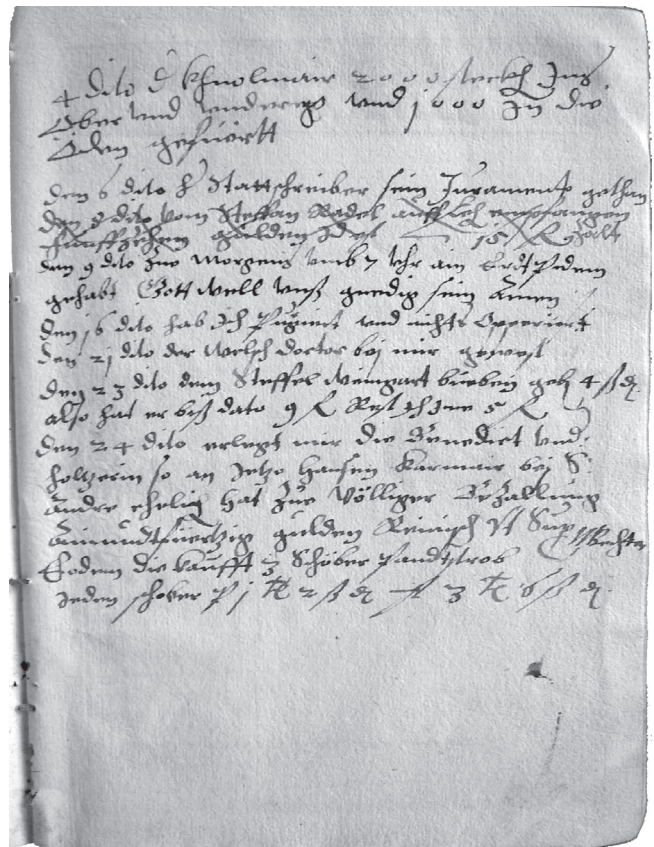 4 dito d Khnolmair 2000 steckh Ins
Ober vnd vndereg vnd 1000 In die
Öden gefüertt
dem 6 dito H Stattschreiber sein Jurament gethan
den 8 dito vom Steffan Radel auff Leh empfangen
funffzehen gulden Idest 15 R
den 9 dito zue Morgens vmb 7 Vhr ain Erdtpidem
gehabt Gott well vnß genedig sein Amen
den 16 dito hab Ich Purgiert vnd nichts Operiert
den 21 dito der Welsch doctor bei mir gewest
den 23 dito dem Steffel Weingart buebein geb 4 ß d.
also hat er biß dato 9 R Rest Ich Ime 5 R
den 24 dito erlegt mir die Benedict Vnd
holtzerin so an Jetzo Hansen Karmair bei S.
Andre ehelich hat zue Völliger Bezallung
Ainundtfiertzig gulden Reinisch
Eodem die kaufft 3 Schöber Pandtstrob
Jeden schober P 1 tt 2 ß d 3 tt 6 ß d.